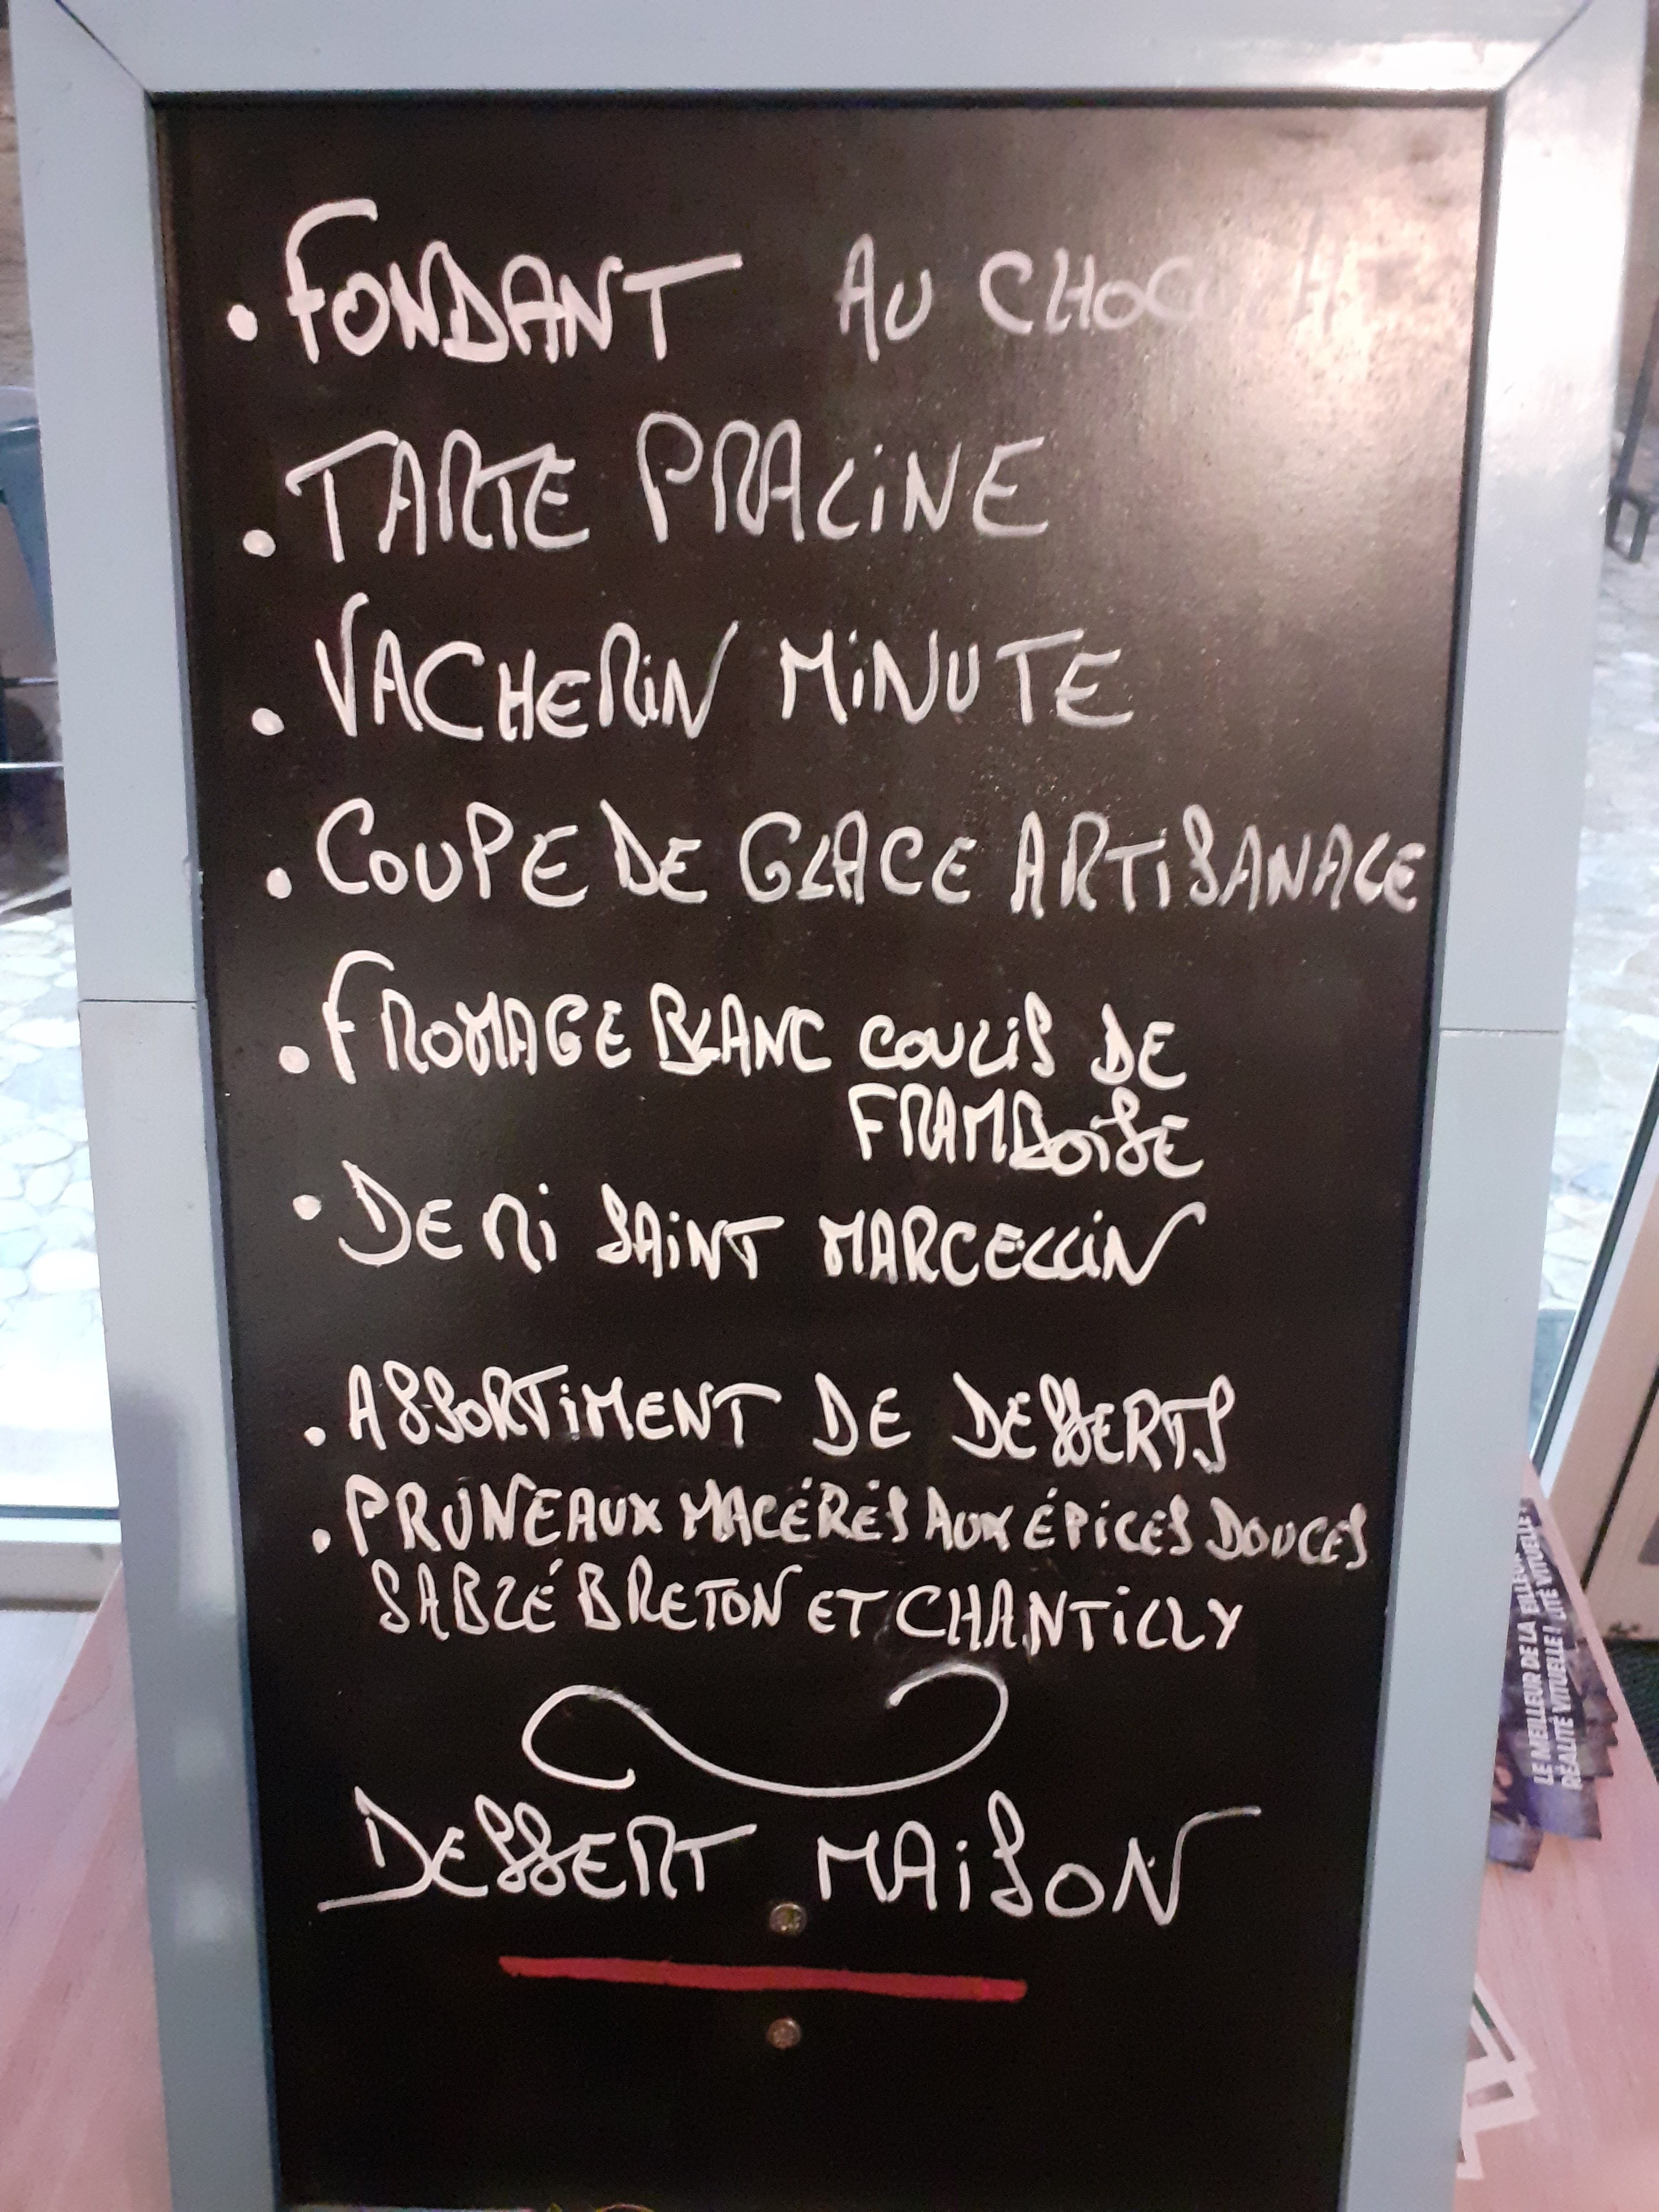 • FONDANT AU CHOC
• TARTE PRALiNE
• VACHERiN MiNUTE
• COUPE DE GLACE ARTiSANALE
• FROMAGE BLANC COULiS DE
FRAMBOiSE
• DEMi SAiNT MARCELLiN
• ASSORTiMENT DE DESSERTS
• PRUNEAUX MACÉRÉS AUX ÉPiCES DOUCES
SABLÉ BRETON ET CHANTiLLY
DESSERT MAiSON
LE MEILLEUR DE LA
RÉALITÉ VITUELLE !